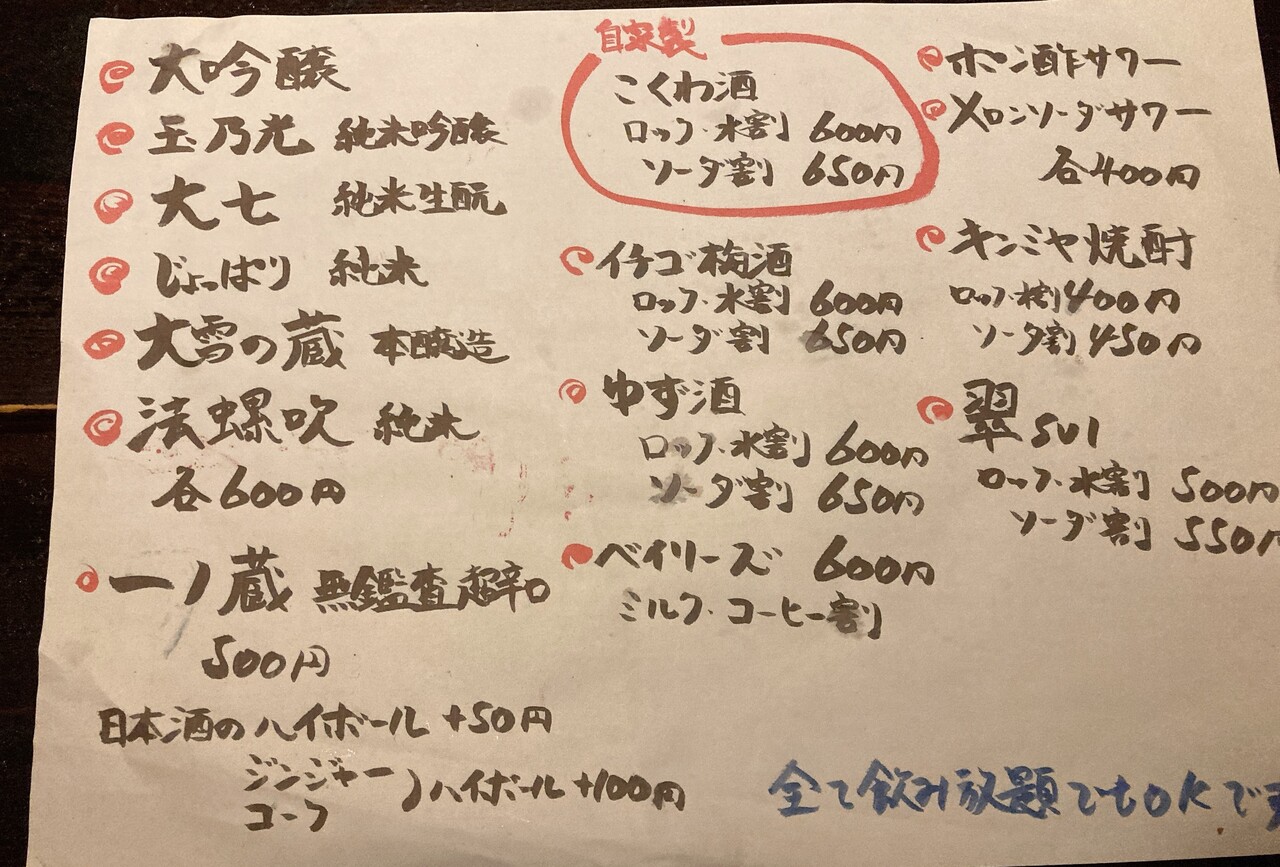 大吟醸
玉乃光 純米吟醸
大七 純米生酛
じょっぱり 純米
大雪の蔵 本醸造
法螺吹 純米
各600円
一ノ蔵 無鑑査超辛口
500円
日本酒のハイボール +50円
ジンジャー
コーラ
)ハイボール+100円
自家製
こくわ酒
ロック・水割 600円
ソーダ割 650円
イチゴ梅酒
ロック・水割 600円
ソーダ割 650円
ゆず酒
ロック・水割 600円
ソーダ割 650円
ベイリーズ 600円
ミルク・コーヒー割
ポン酢サワー
メロンソーダサワー
各400円
キンミヤ焼酎
ロック・水割400円
ソーダ割450円
翠SUI
ロック・水割 500円
ソーダ割 550円
全て飲み放題でもOKです